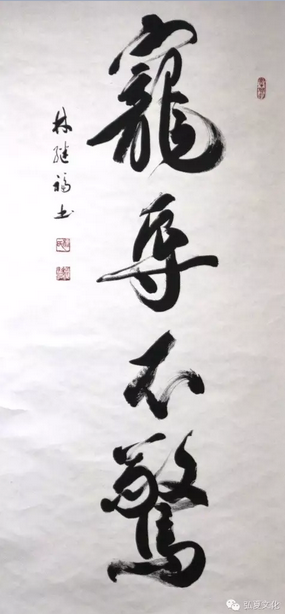 寵辱不驚
林继福书
弘夏文化